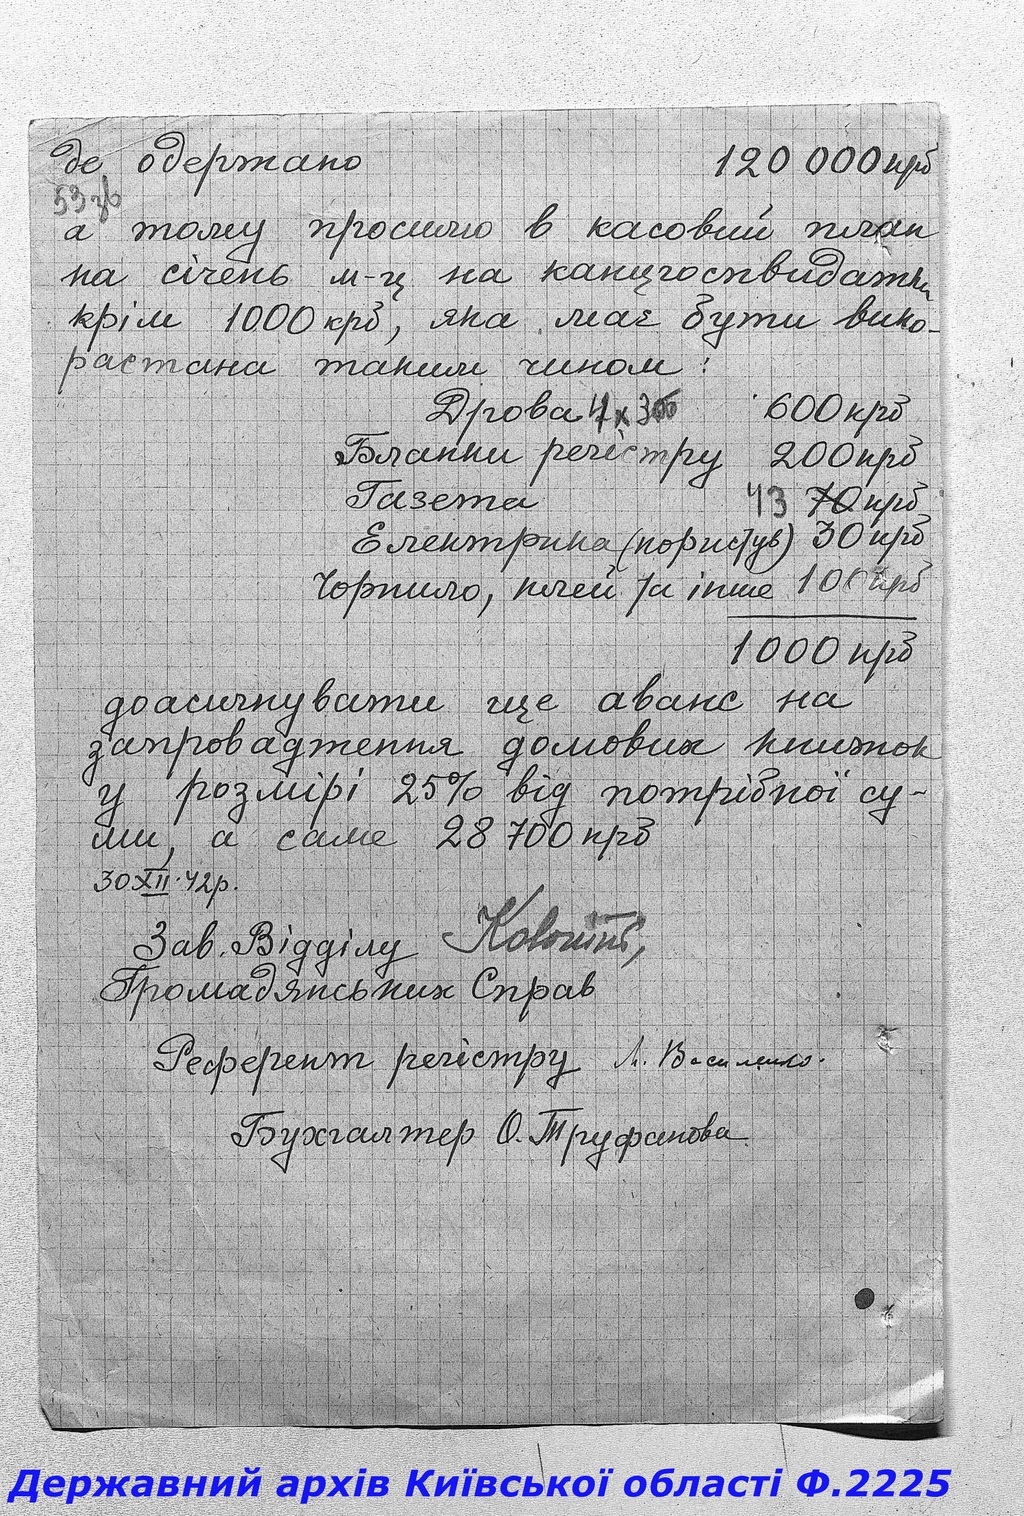 де одержано 120 000 крб
53зв
а тому просимо в касовий план
на січень м-ц на канцгоспвидатки
крім 1000 крб, яка має бути вико-
растана таким чином:
Дрова 600 крб
Бланки регістру 200 крб
Газета 43 70 крб
Електрика (користув) 30 крб
Чорнило, клей та інше 100 крб
1000 крб
доасигнувати ще аванс на
запровадження домових книжок
у розмірі 25% від потрібної су-
ми, а саме 28 700 крб
30 XII 42р.
Зав. Відділу
Громадянських Справ
Референт регістру Л. Василенко.
Бухгалтер О. Труфанова
Державний архів Київської області Ф.2225